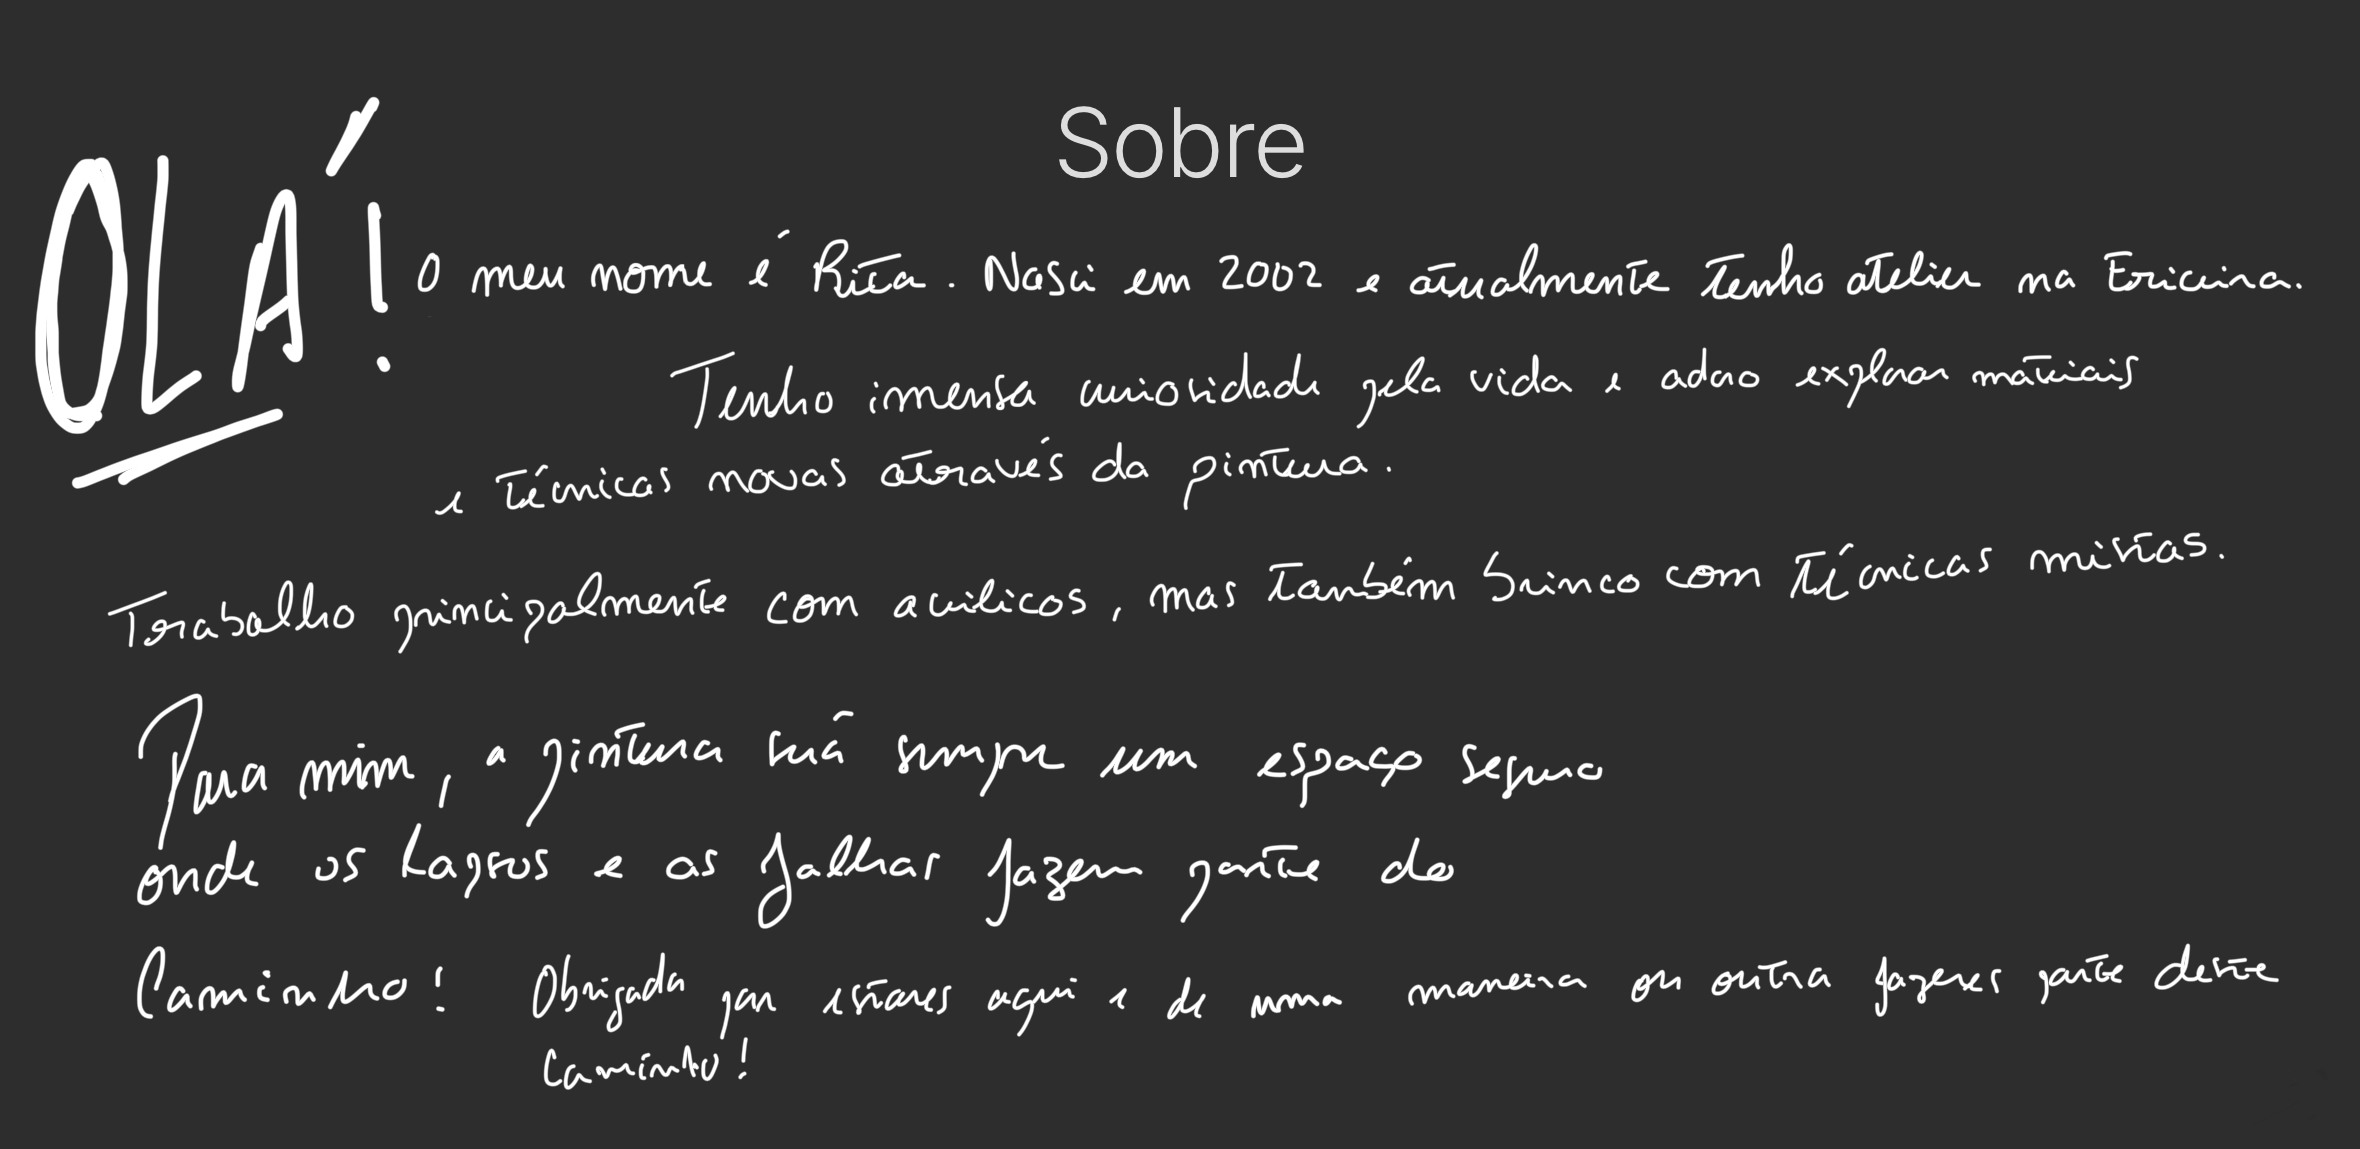 Sobre
OLÁ! O meu nome é Rita. Nasci em 2002 e atualmente tenho atelier na Ericeira.
Tenho imensa curiosidade pela vida e adoro explorar materiais
e técnicas novas através da pintura.
Trabalho principalmente com acrilicos, mas também brinco com técnicas mistas.
Para mim, a pintura será sempre um espaço seguro
onde os lapsos e as falhas fazem parte do
Caminho! Obrigada por estares aqui e de uma maneira ou outra fazeres parte deste
Caminho!